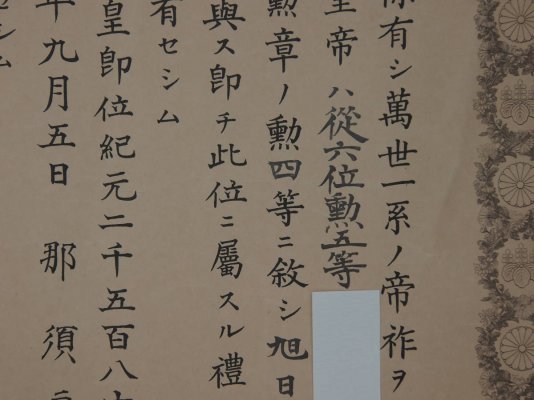 有シ萬世一系ノ帝祚ヲ
皇帝ハ從六位勲五等
勲章ノ勲四等ニ敘シ旭日
與ス卽チ此位ニ屬スル禮
有セシム
皇卽位紀元二千五百八
年九月五日 那須